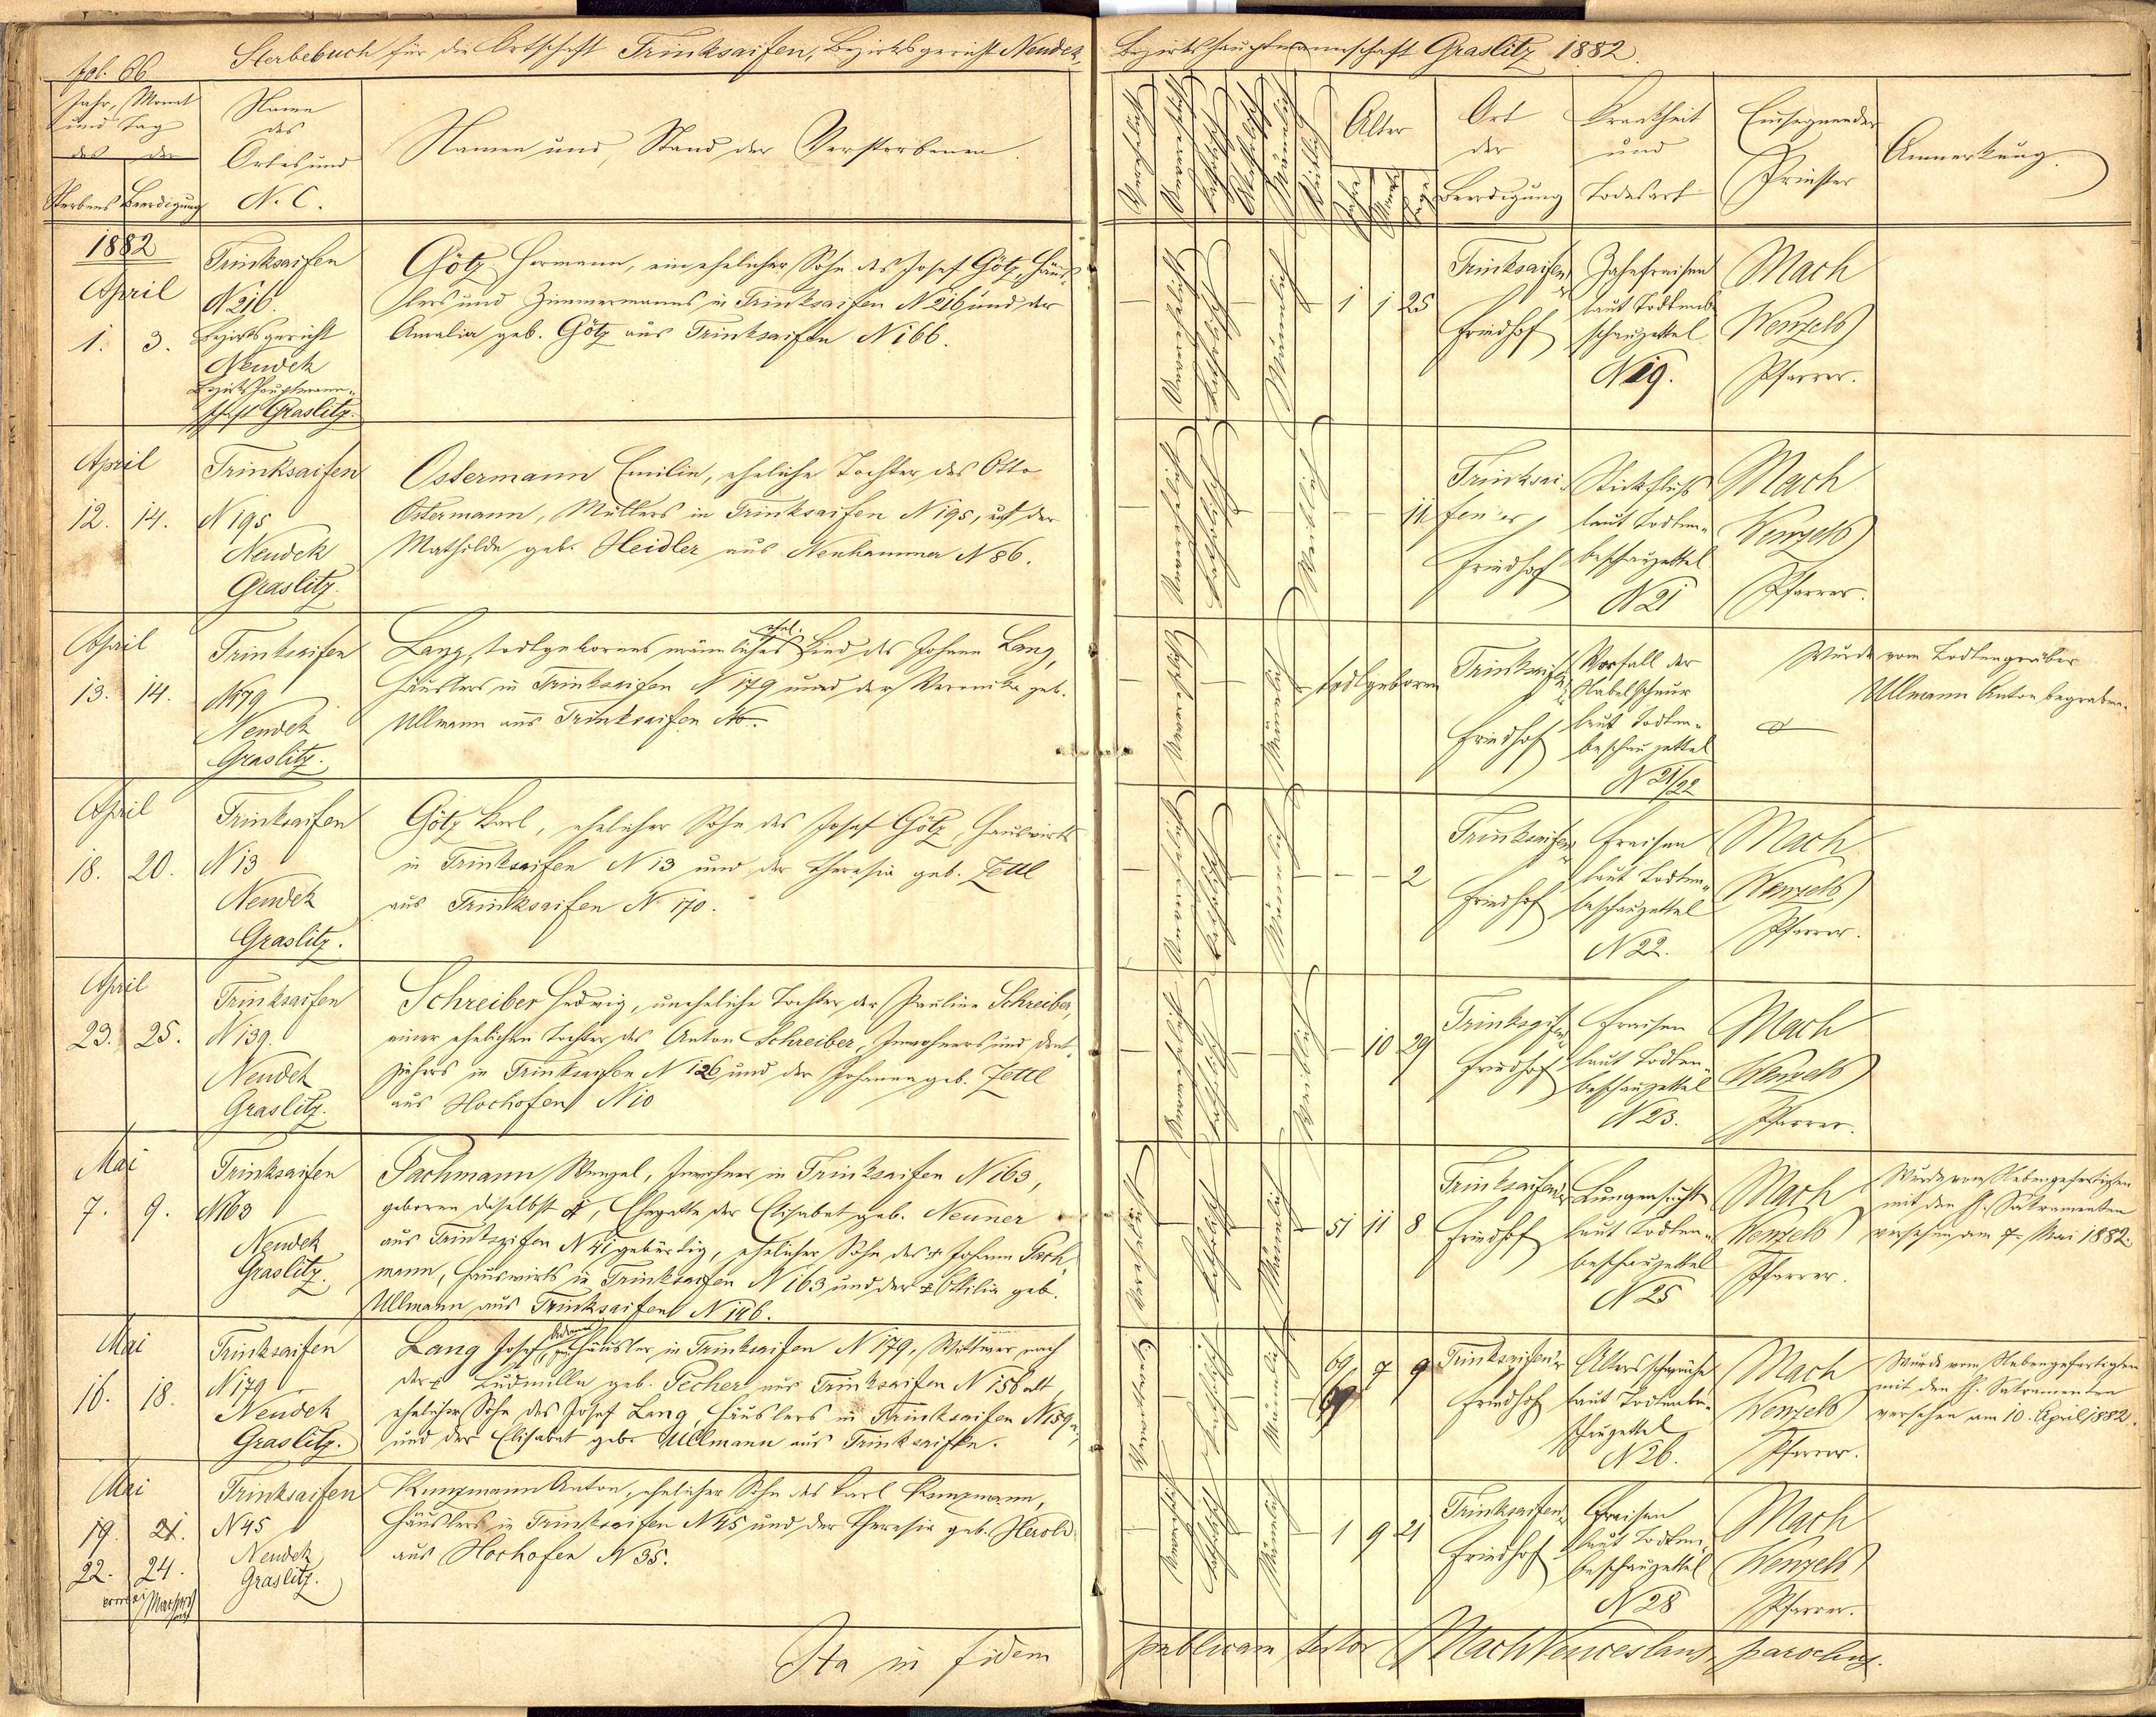 fol. 66
Sterbebuch für die Ortschaft Trinksaifen, Bezirksgericht Neudek,
Bezirkshauptmannschaft Graslitz 1882.
Jahr, Monat
und Tag
des der
Sterbens Beerdigung
Name
des
Ortes und
N. C.
Namen und Stand der Verstorbenen.
Verehelicht
Unverehelicht
Katholisch
Akatholisch
Männlich
Weiblich
Alter
Jahre
Monate
Tage
Ort
der
Beerdigung
Krankheit
und
Todesart
Einsegnender
Priester
Anmerkung.
1882
April
1. 3.
Trinksaifen
N 216.
Bezirksgericht
Neudek
Bezirkshauptmann-
schaft Graslitz.
Götz Hermann, ein ehelicher Sohn des Josef Götz, Häus-
lers und Zimmermanns in Trinksaifen N 216 und der
Amalia geb. Götz aus Trinksaifen N 166.
Katholisch
Männlich
1 1 25
Trinksaifner
Friedhof
Zahnfraisen
laut Todtenbe-
schauzettel
N 19.
Mach
Wenzel
Pfarrer.
April
12. 14.
Trinksaifen
N 195
Neudek
Graslitz.
Ostermann Emilie, eheliche Tochter des Otto
Ostermann, Müllers in Trinksaifen N 195, und der
Mathilde geb. Heidler aus Neuhammer N 86.
Katholisch
Weiblich
11
Trinksai-
fener
Friedhof
Stickfluß
laut Todten-
beschauzettel
N 21
Mach
Wenzel
Pfarrer.
April
13. 14.
Trinksaifen
N 179
Neudek
Graslitz.
Lang, todtgebornes männliches ehel. Kind des Johann Lang,
Häuslers in Trinksaifen N 179 und der Veronika geb.
Ullmann aus Trinksaifen No.
Männlich
todtgeboren
Trinksaifner
Friedhof
Vorfall der
Nabelschnur
laut Todten-
beschauzettel
N 21/22
Wurde vom Todtengräber
Ullmann Anton begraben.
April
18. 20.
Trinksaifen
N 13
Neudek
Graslitz.
Götz Karl, ehelicher Sohn des Josef Götz, Hauswirts
in Trinksaifen N 13 und der Theresia geb. Zettl
aus Trinksaifen N 170.
Katholisch
Männlich
2
Trinksaifner
Friedhof
Fraisen
laut Todten-
beschauzettel
N 22.
Mach
Wenzel
Pfarrer.
April
23. 25.
Trinksaifen
N 139.
Neudek
Graslitz.
Schreiber Hedwig, uneheliche Tochter der Pauline Schreiber,
einer ehelichen Tochter des Anton Schreiber, Inwohners und Drat-
ziehers in Trinksaifen N 126 und der Johanna geb. Zettl
aus Hochofen N 10
Katholisch
Weiblich
10 29
Trinksaifner
Friedhof
Fraisen
laut Todten-
beschauzettel
N 23.
Mach
Wenzel
Pfarrer.
Mai
7. 9.
Trinksaifen
N 163
Neudek
Graslitz.
Pachmann Wenzel, Inwohner in Trinksaifen N 163,
geboren daselbst, Ehegatte der Elisabet geb. Neuner
aus Trinksaifen N 41 gebürtig, ehelicher Sohn des † Johann Pach-
mann, Hauswirts in Trinksaifen N 163 und der † Ottilia geb.
Ullmann aus Trinksaifen N 146.
Verehelicht
Katholisch
Männlich
51 11 8
Trinksaifner
Friedhof
Lungensucht
laut Todten-
beschauzettel
N 25
Mach
Wenzel
Pfarrer.
Wurde vom Nebengefertigten
mit den h. Sakramenten
versehen am 7. Mai 1882.
Mai
16. 18.
Trinksaifen
N 179
Neudek
Graslitz.
Lang Josef, Häusler in Trinksaifen N 179, Wittwer nach
der † Ludmilla geb. Pecher aus Trinksaifen N 156 alt
ehelicher Sohn des Josef Lang, Häuslers in Trinksaifen N 159,
und der Elisabet geb. Ullmann aus Trinksaifen.
Verwittwet
Katholisch
Männlich
69 7 9
Trinksaifner
Friedhof
Altersschwäche
laut Todtenbe-
schauzettel
N 26.
Mach
Wenzel
Pfarrer.
Wurde vom Nebengefertigten
mit den h. Sakramenten
versehen am 10. April 1882.
Mai
19. 21.
22. 24.
Trinksaifen
N 45
Neudek
Graslitz.
Kunzmann Anton, ehelicher Sohn des Karl Kunzmann,
Häuslers in Trinksaifen N 45 und der Theresia geb. Herold
aus Hochofen N 35.
Katholisch
Männlich
1 9 21
Trinksaifner
Friedhof
Fraisen
laut Todten-
beschauzettel
N 28
Mach
Wenzel
Pfarrer.
Ita in fidem publicam testor Mach Venceslaus, parochus.